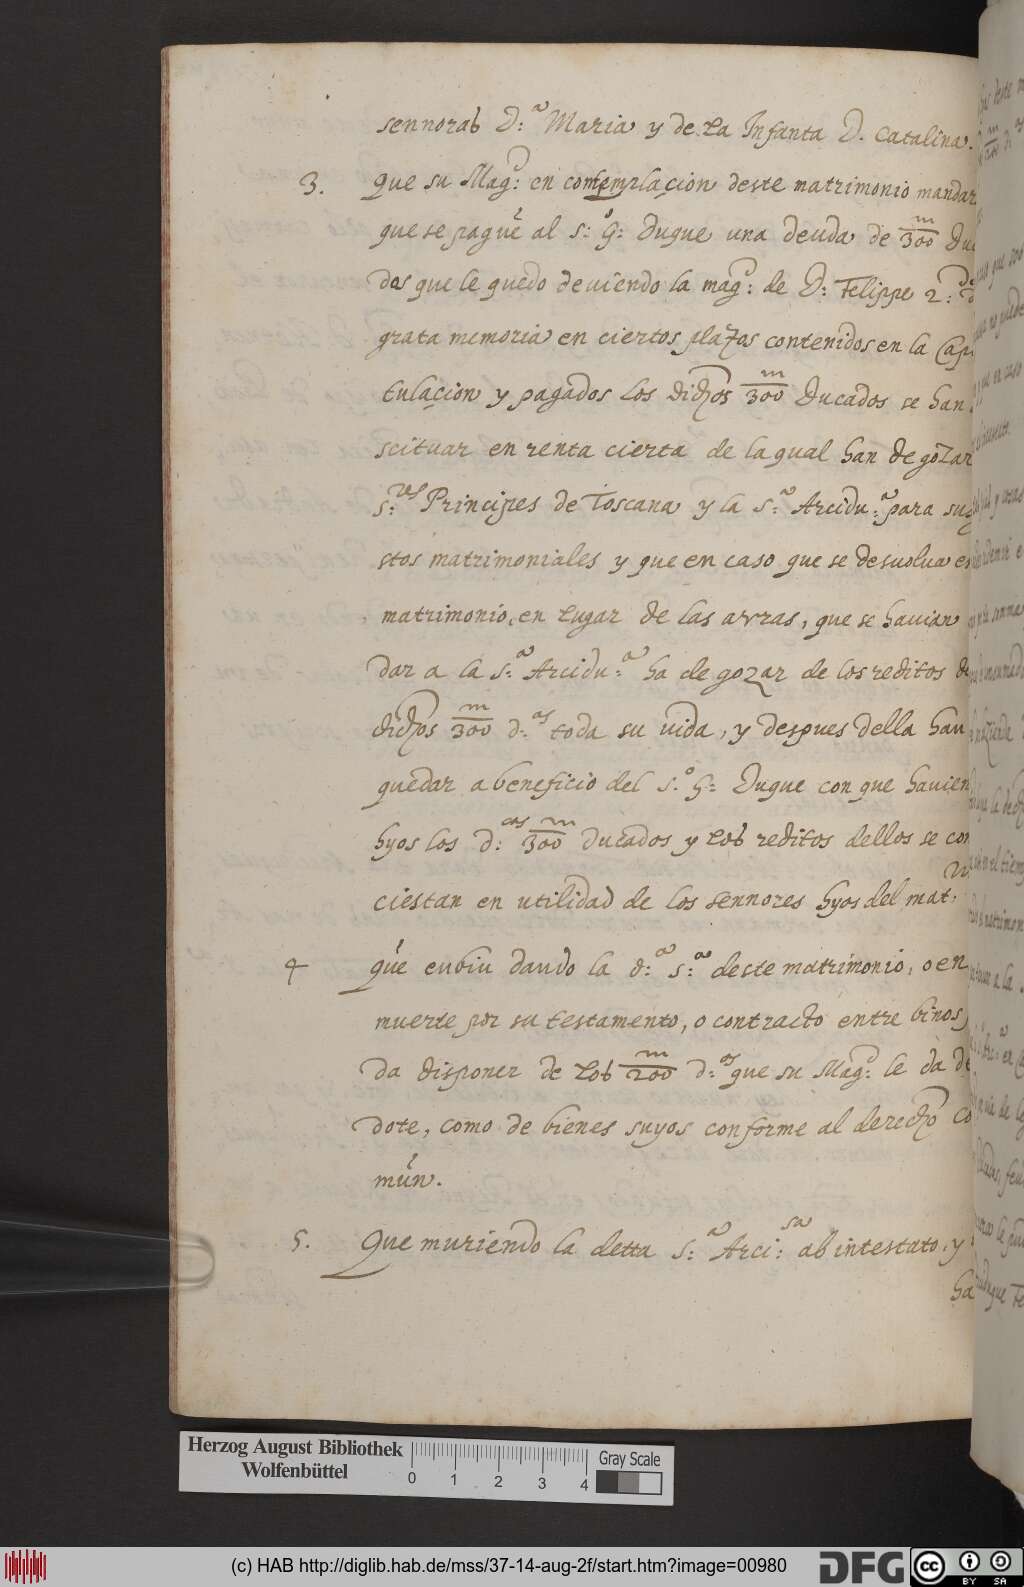 sennoras D.ª Maria y de la Infanta D. Catalina.
3. Que su Mag.d en contemplacion deste matrimonio mandar
que se pague al s.º G. Duque una deuda de 300 m Duc
dos que le quedo deviendo la mag.d de D: Felippe 2.º de
grata memoria en ciertos plazos contenidos en la Capi
tulacion y pagados los dichos 300 m Ducados se han
scituar en renta cierta de la qual han de gozar
s.res Principes de Toscana y la s.ª Arcidu.ª para sus
stos matrimoniales y que en caso que se desuelva es
matrimonio, en lugar de las arras, que se havian
dar a la s.ª Arcidu.ª ha de gozar de los reditos de
dichos 300 m d.os toda su vida, y despues della han
quedar a beneficio del s.º G: Duque con que havien
hyos los d.cos 300 m ducados y los reditos dellos se con
ciertan en utilidad de los sennores hyos del mat.
4 Que enbiudando la d.ª s.ª deste matrimonio, o en
muerte por su testamento, o contracto entre binos
da disponer de los 200 m d.os que su Mag.d le da de
dote, como de bienes suyos conforme al derecho co
mún.
5. Que muriendo la detta s.ª Arci.sa ab intestato, y
ha
Herzog August Bibliothek
Wolfenbüttel
0 1 2 3 4
Gray Scale
(c) HAB http://diglib.hab.de/mss/37-14-aug-2f/start.htm?image=00980
DFG
cc BY SA